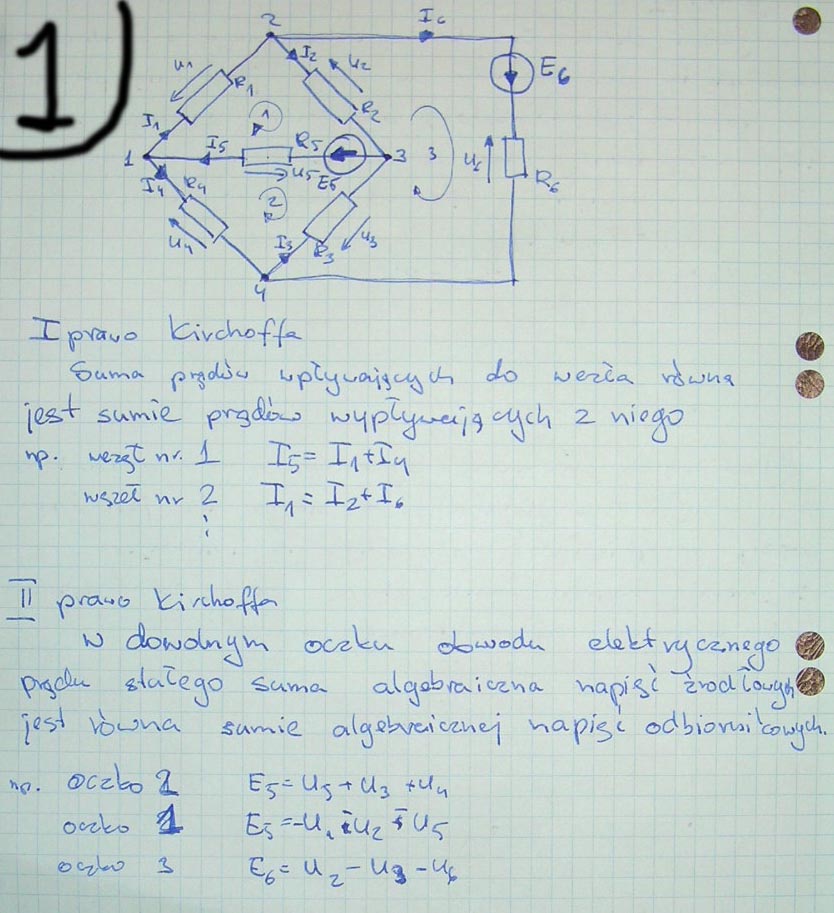 1
2
I6
E6
U1
I2
U2
R1
R2
I1
1
I5
R5
1
3
3
U6
1
U5
E5
R6
I4
R4
2
U4
I3
R3
U3
4
I prawo Kirchoffa
Suma prądów wpływających do węzła równa
jest sumie prądów wypływających z niego
np. węzęł nr. 1 I5 = I1 + I4
węzeł nr 2 I1 = I2 + I6
⋮
II prawo Kirchoffa
W dowolnym oczku obwodu elektrycznego
prądu stałego suma algebraiczna napięć źródłowych
jest równa sumie algebraicznej napięć odbiornikowych.
np. oczko 2 E5 = U5 + U3 + U4
oczko 1 E5 = -U1 U2 U5
oczko 3 E6 = U2 - U3 - U6